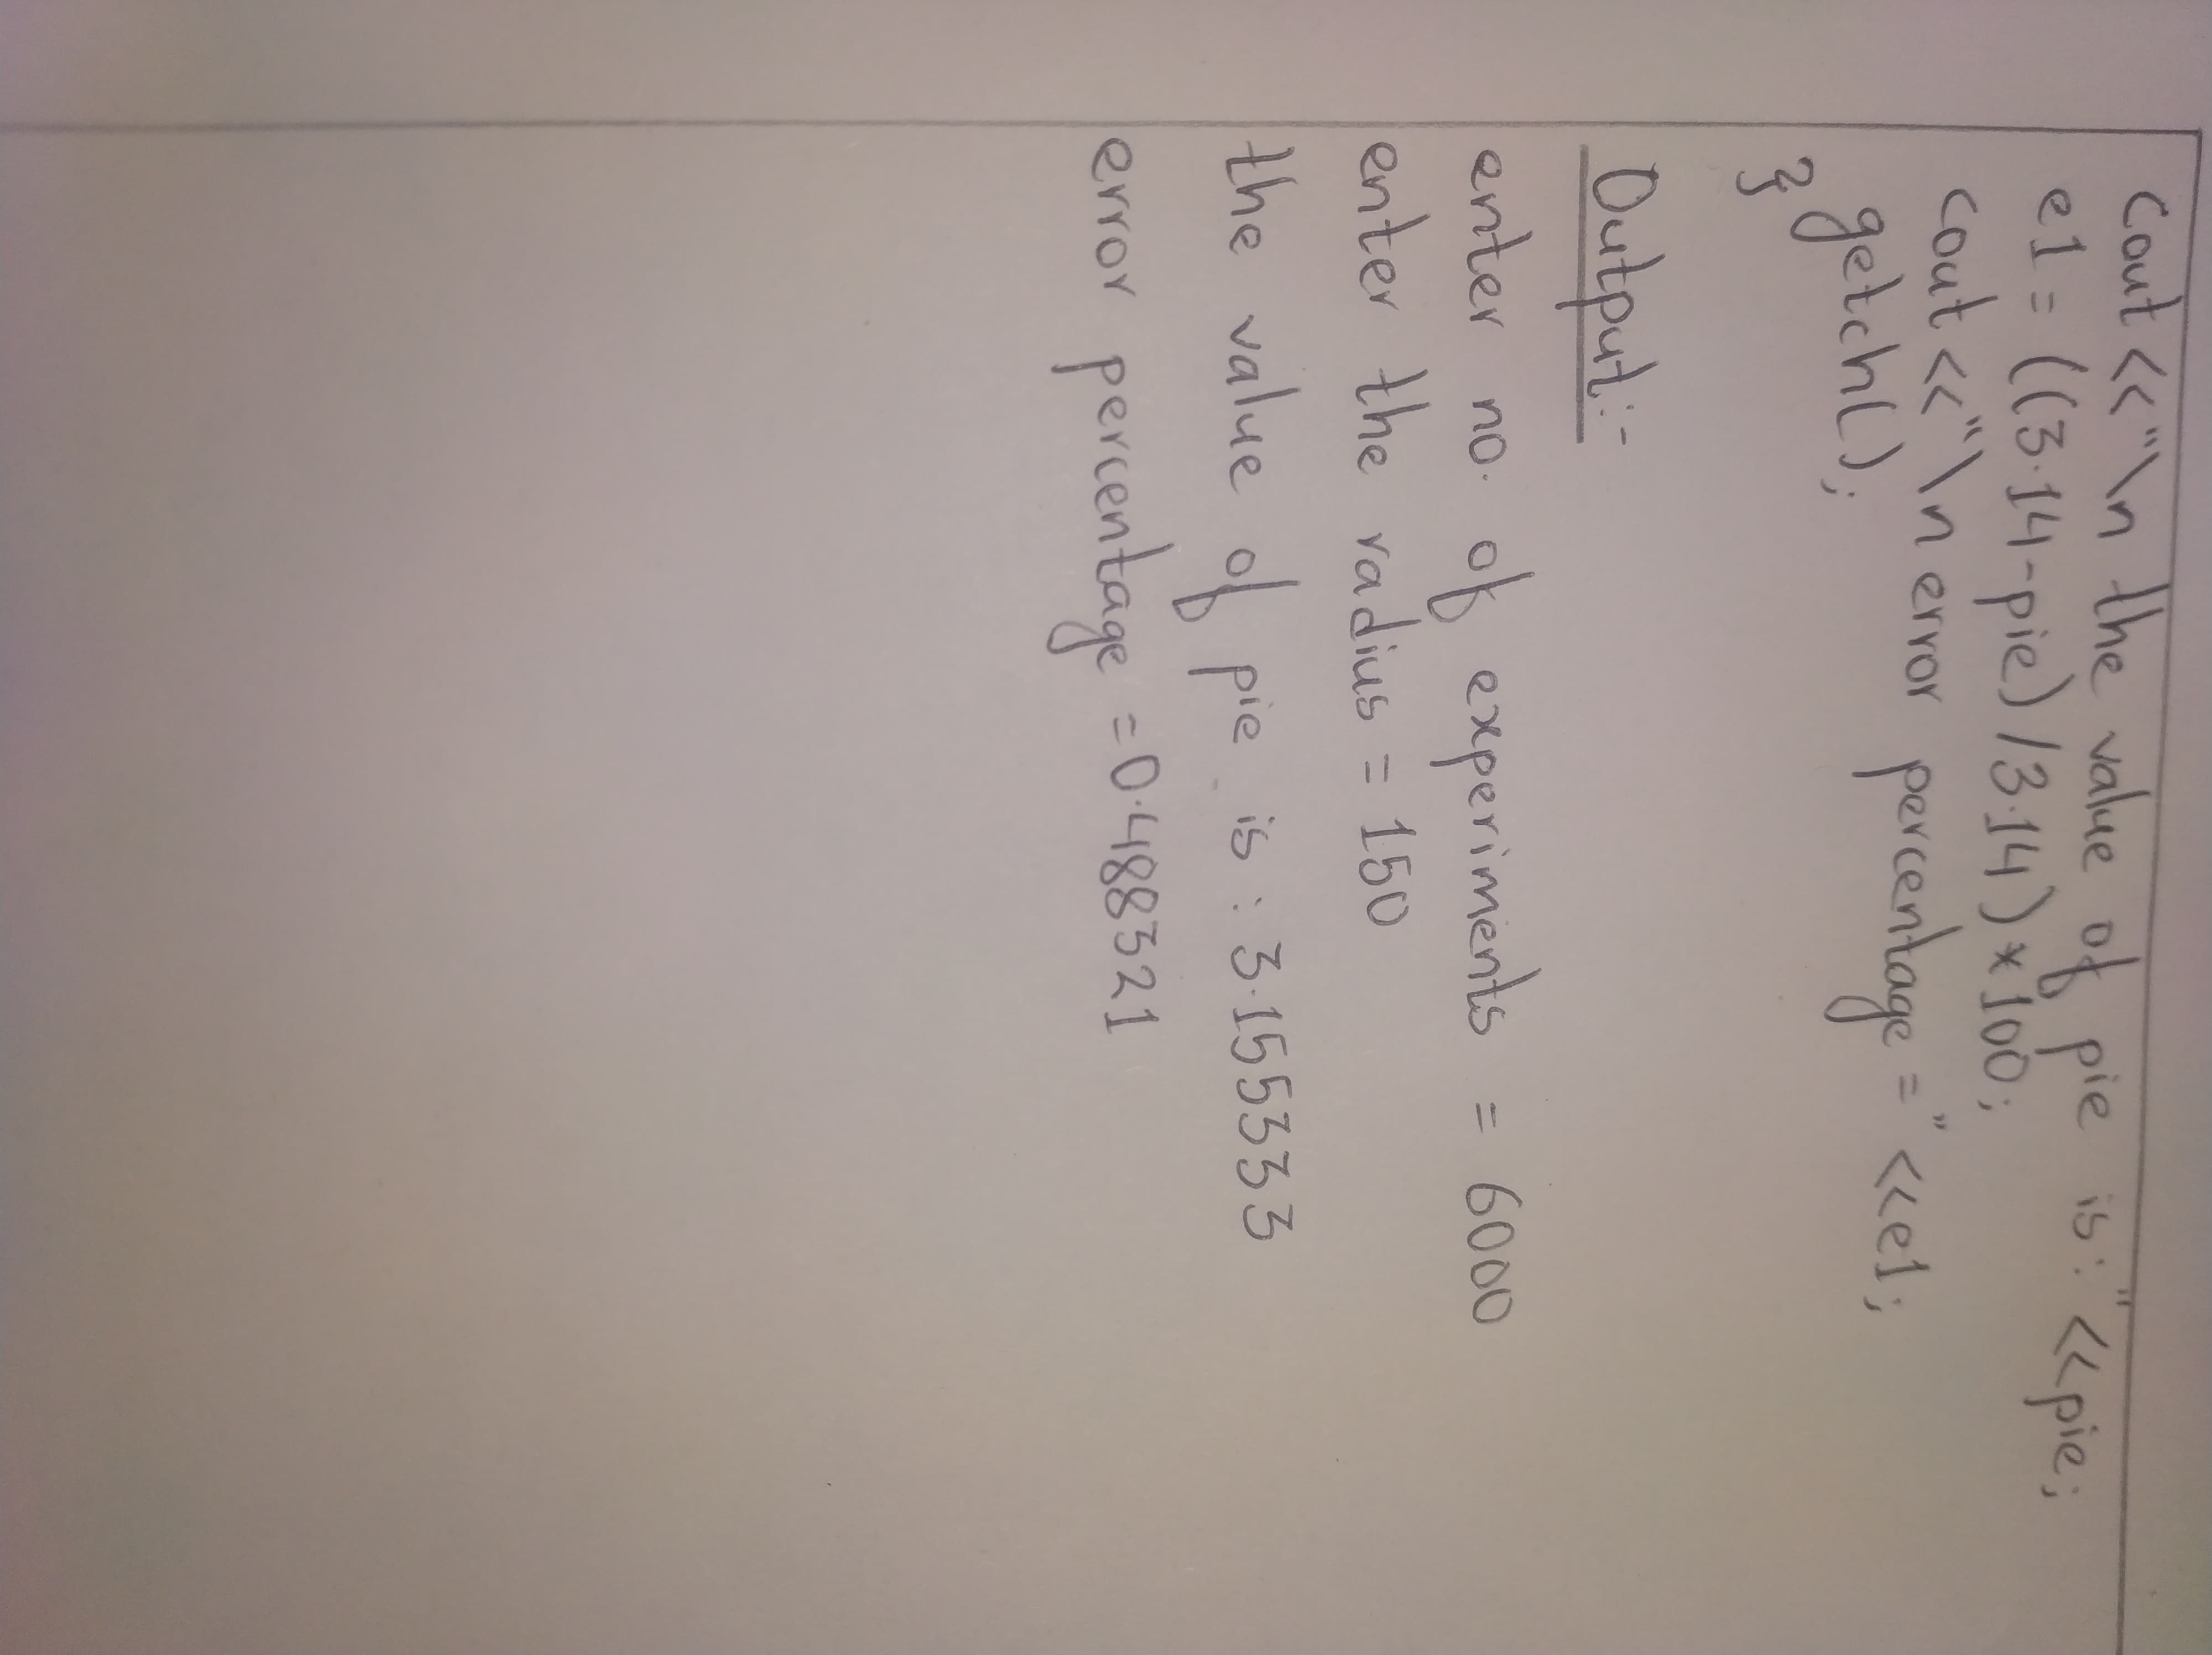 Cout<<"\n the value of pie is:"<<pie;
e1 = ((3.14-pie)/3.14)*100;
cout<<"\n error percentage ="<<e1;
getch();
}
Output:-
enter no. of experiments = 6000
enter the radius = 150
the value of pie is : 3.155333
error percentage = 0.488321